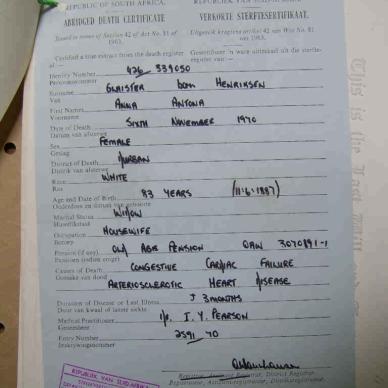 REPUBLIC OF SOUTH AFRICA. REPUBLIEK VAN SUID-
ABRIDGED DEATH CERTIFICATE VERKORTE STERFTESERTIFIKAAT.
Issued in terms of Section 42 of Act No. 81 of 1963. Uitgereik kragtens artikel 42 van Wet No. 81 van 1963.
Certified a true extract from the death register of — Gesertifiseer 'n ware uittreksel uit die sterfteregister van —
Identity Number 426 339050
Persoonsnommer
Surname GLAISTER born HENRIKSEN
Van
First Names ANNA ANTONIA
Voorname
Date of Death SIXTH NOVEMBER 1970
Datum van afsterwe
Sex FEMALE
Geslag
District of Death DURBAN
Distrik van afsterwe
Race WHITE
Ras
Age and Date of Birth 83 YEARS (11.6.1887)
Ouderdom en datum van geboorte
Marital Status WIDOW
Huwelikstaat
Occupation HOUSEWIFE
Beroep
Pension (if any) OLD AGE PENSION OAW 3070891-1
Pensioen (indien enige)
Causes of Death CONGESTIVE CARDIAC FAILURE
Oorsake van dood
ARTERIOSCLEROTIC HEART DISEASE
Duration of Disease or Last Illness 3 MONTHS
Duur van kwaal of laaste siekte
Medical Practitioner Dr. I. Y. PEARSON
Geneesheer
Entry Number 2591 70
Inskrywingsnommer
REPUBLIEK VAN SUID-AFRIKA
This is the Last Will